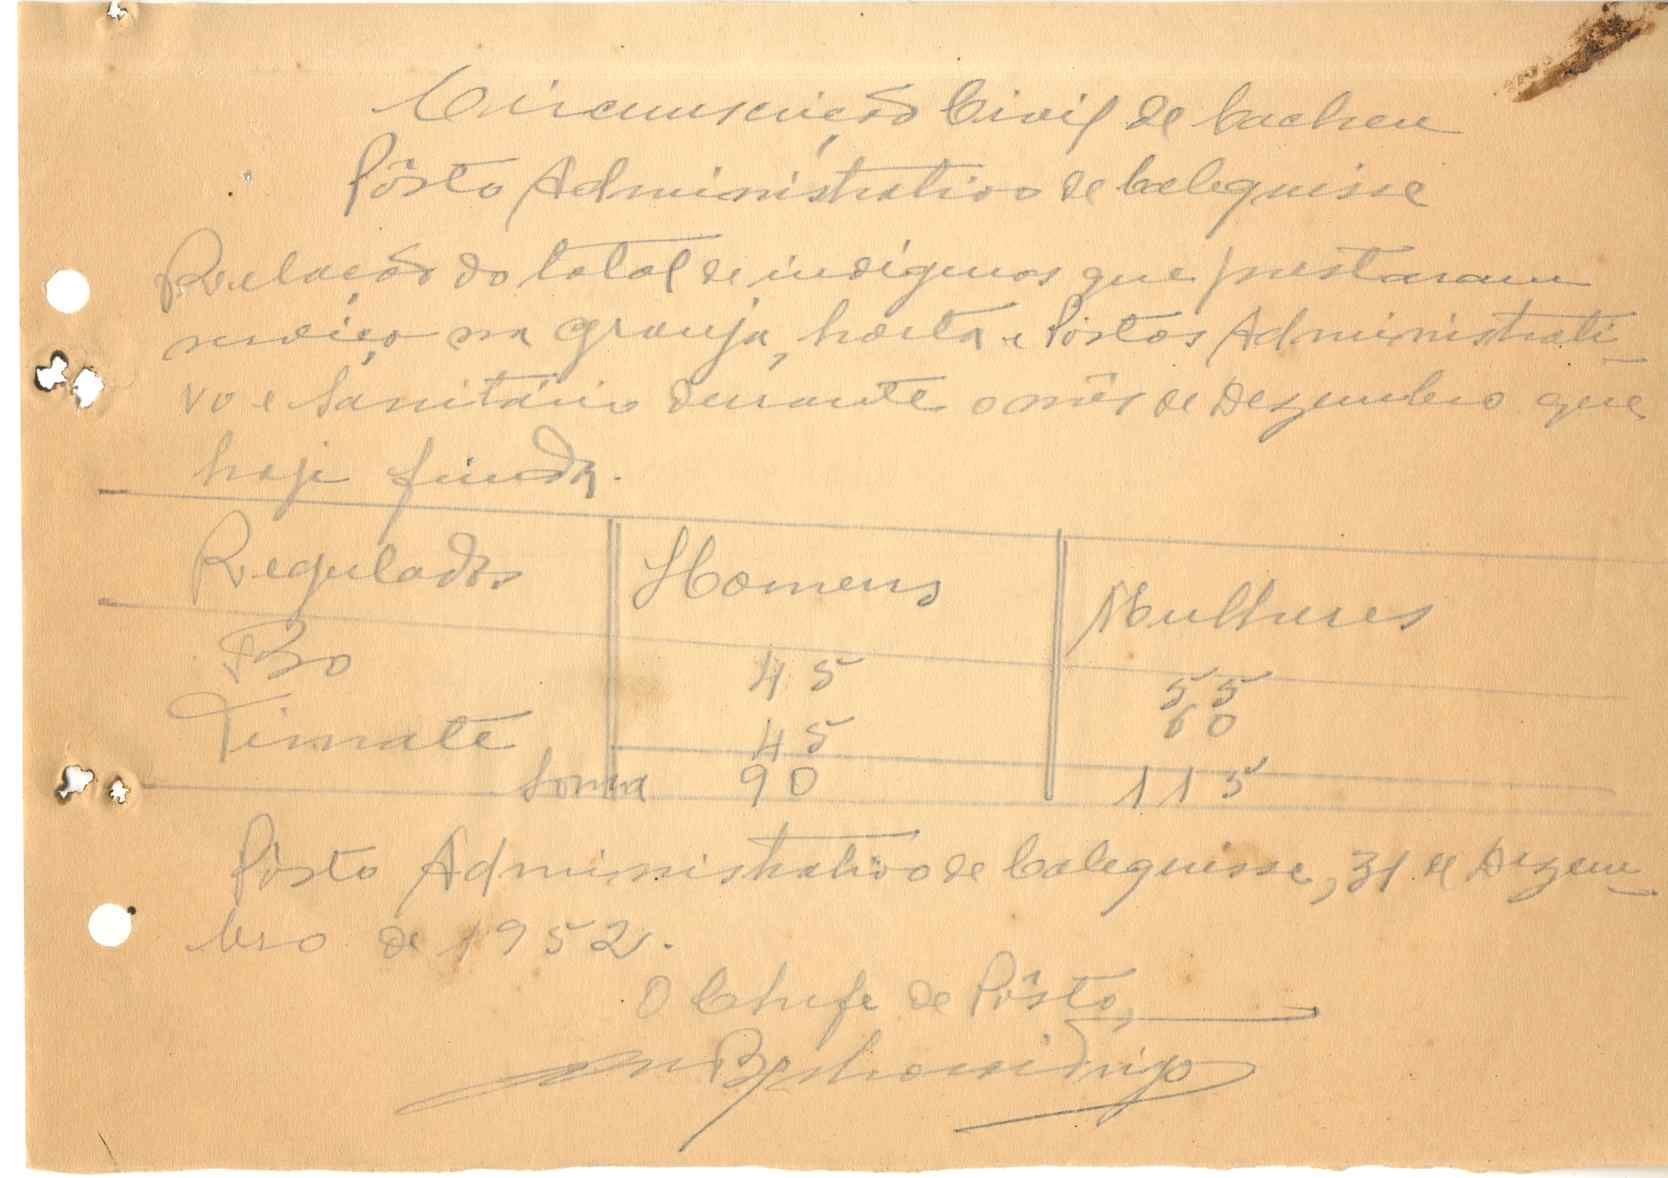 Circunscrição Civil de Cacheu
Pôsto Administrativo de Calequisse
Relação do total de indígenas que prestaram
serviço na granja, horta e Postos Administrati-
vo e Sanitário durante o mês de Dezembro que
hoje finda.
Regulados Homens Mulheres
Bó 45 55
Timate 45 60
Soma 90 115
Pôsto Administrativo de Calequisse, 31 de Dezem-
bro de 1952.
O Chefe de Pôsto,